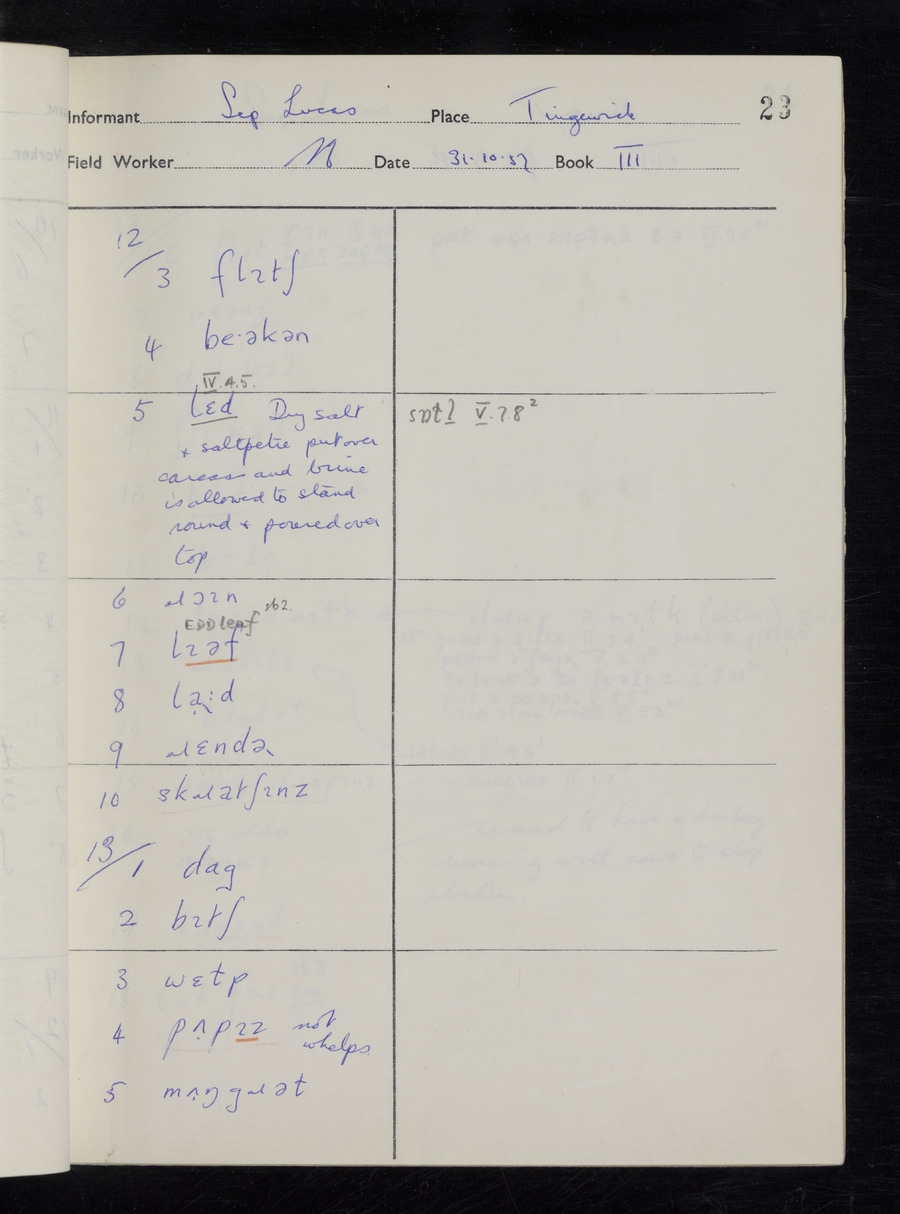 Informant Sep Lucas Place Tingewick 23
Field Worker N Date 31.10.52 Book III
12/3 flɪtʃ
4 be·əkən
IV.4.5.
5 lɛd Dry salt
+ saltpetre put over
carcass and brine
is allowed to stand
round + poured over
top
sɒtɫ V.7.8²
6 ɹɔɪn
EDD leaf sb2.
7 lɪəf
8 lạ:d
9 ɹɛndə
10 skɹatʃɪnz
13/1 dag
2 bɪtʃ
3 wɛɫp
4 pʌ̣pɪz not
whelps
5 mʌ̣ŋgɹət